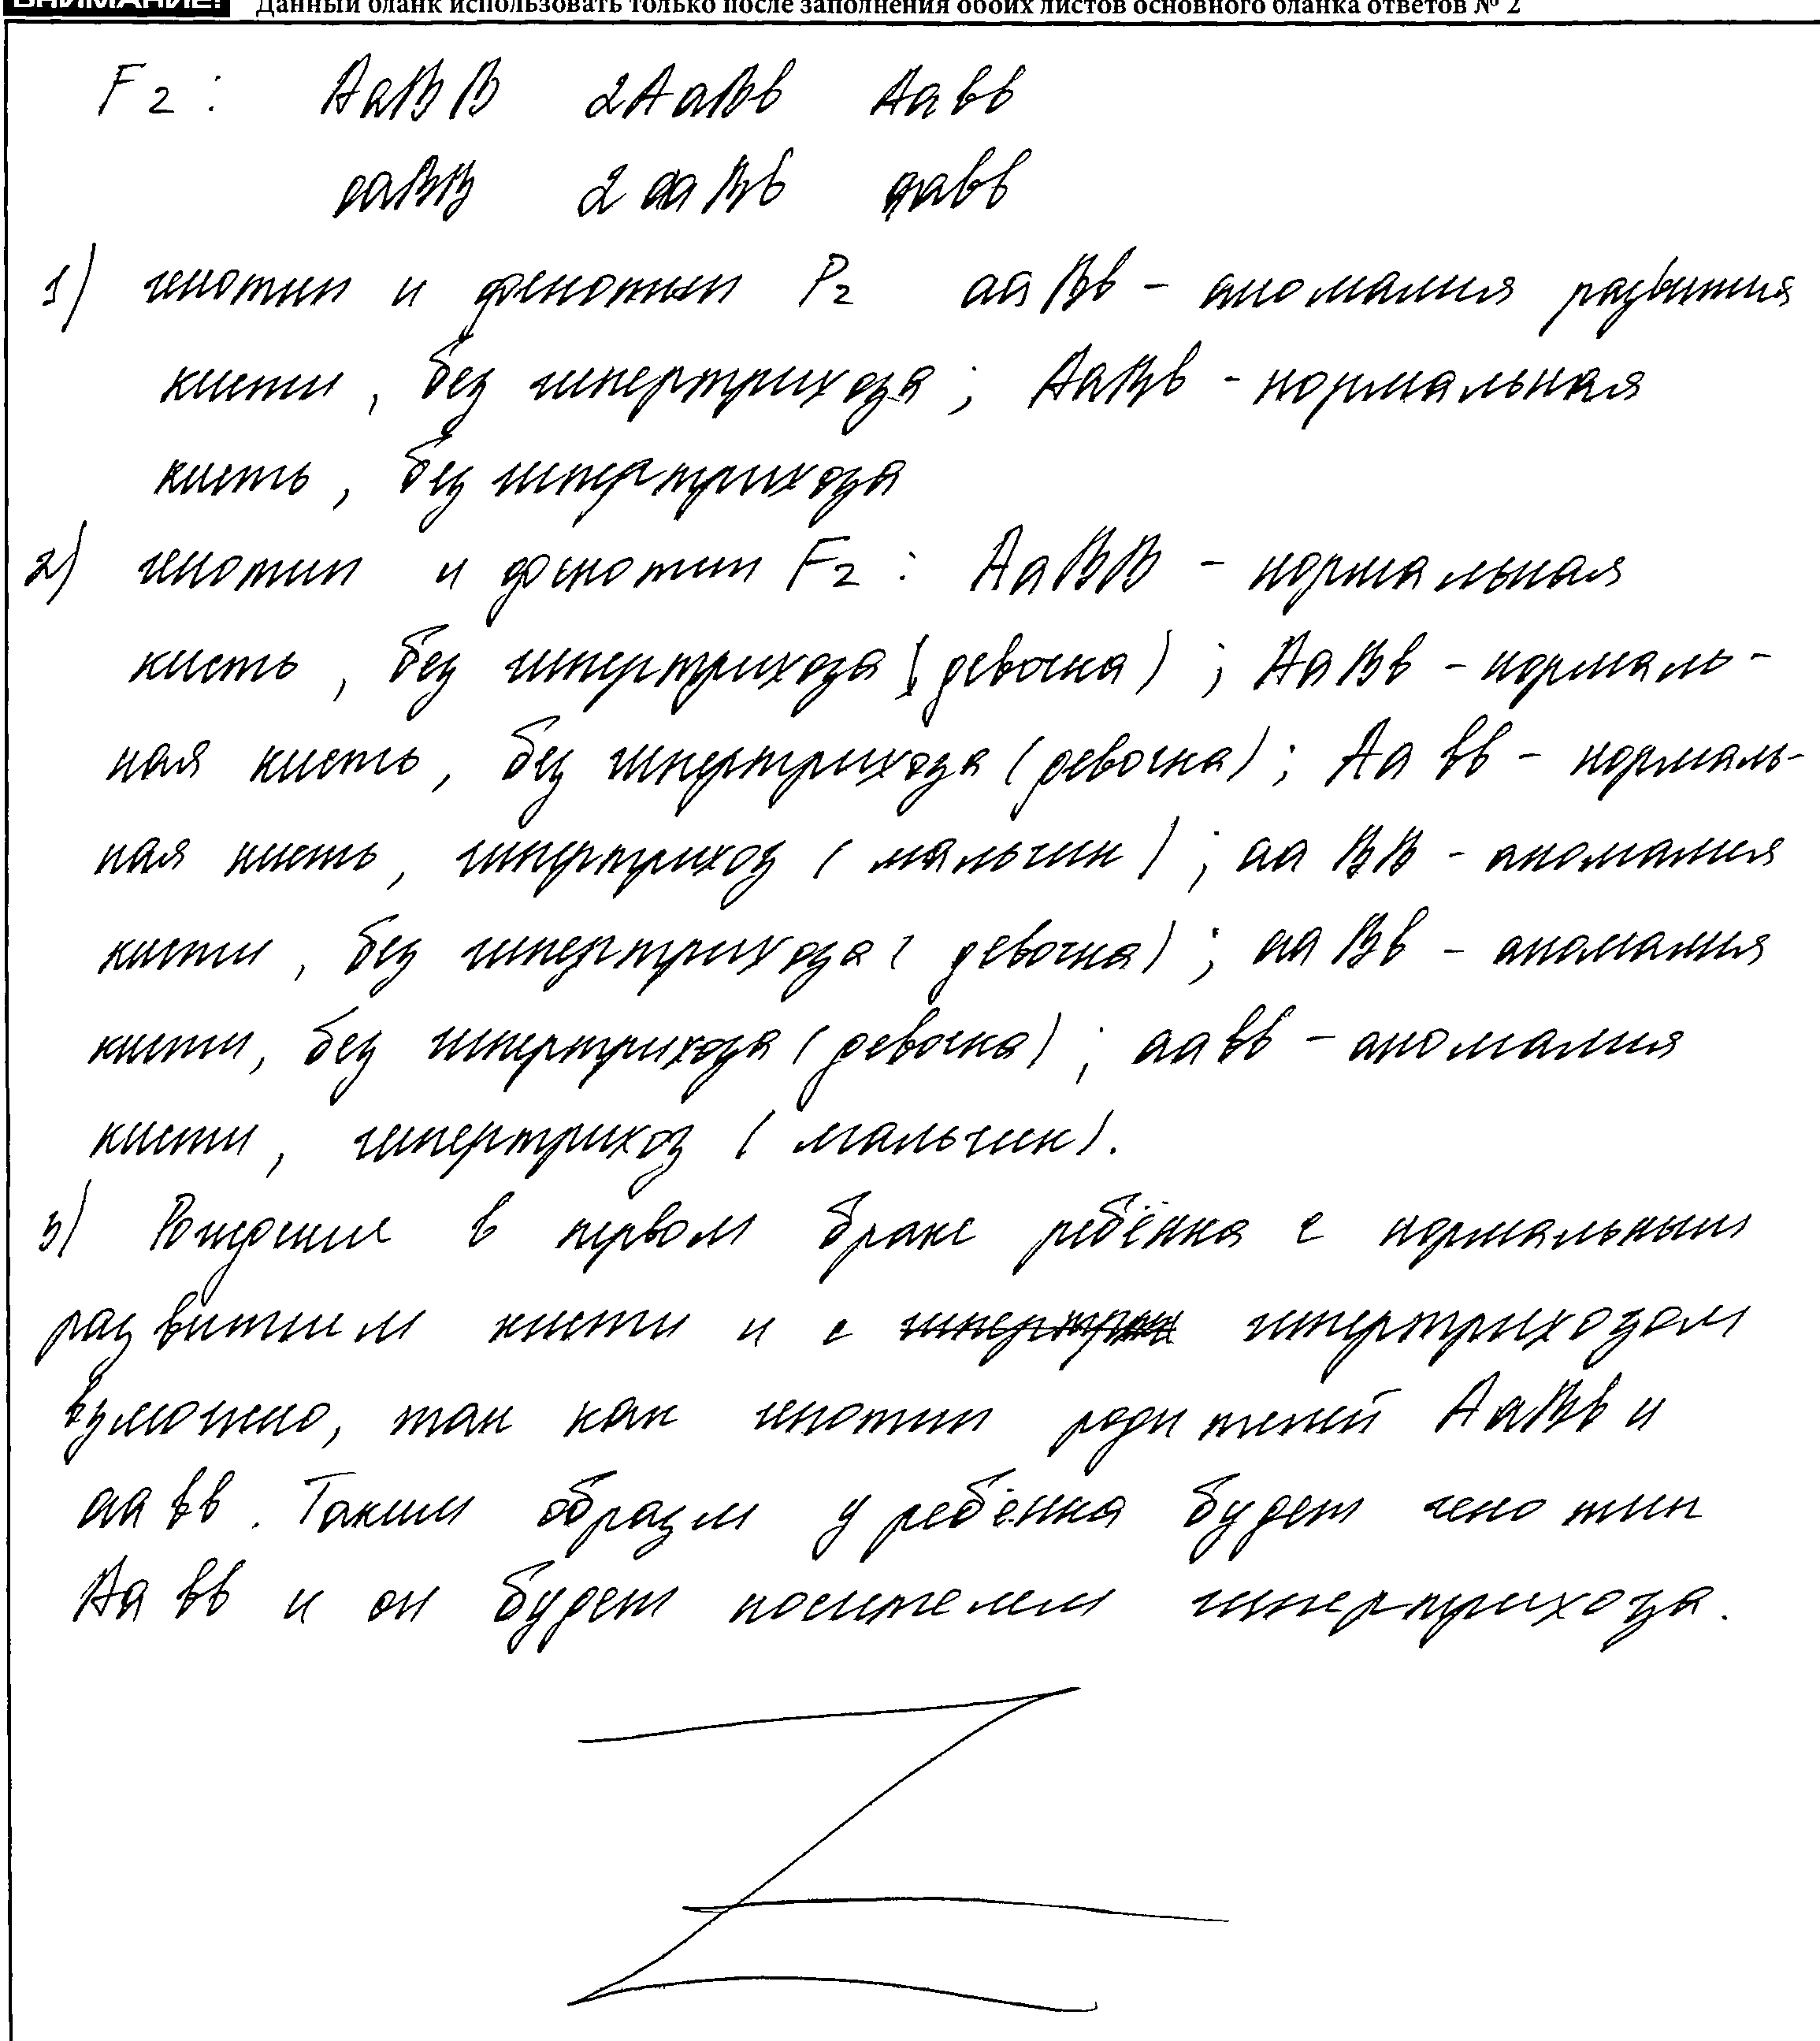 ВНИМАНИЕ! Данный бланк использовать только после заполнения обоих листов основного бланка ответов № 2
F2: AaBB 2AaBb Aabb
aaBB 2aaBb aabb
1) генотип и фенотип P2 aaBb - аномалия развития
кисти, без гипертрихоза; AaBb - нормальная
кисть, без гипертрихоза
2) генотип и фенотип F2: AaBB - нормальная
кисть, без гипертрихоза (девочка); AaBb - нормаль-
ная кисть, без гипертрихоза (девочка); Aabb - нормаль-
ная кисть, гипертрихоз (мальчик); aaBB - аномалия
кисти, без гипертрихоза (девочка); aaBb - аномалия
кисти, без гипертрихоза (девочка); aabb - аномалия
кисти, гипертрихоз (мальчик).
3) Рождение в первом браке ребёнка с нормальным
развитием кисти и с гипертрихозом
возможно, так как генотип родителей AaBb и
aabb. Таким образом у ребёнка будет генотип
Aabb и он будет носителем гипертрихоза.